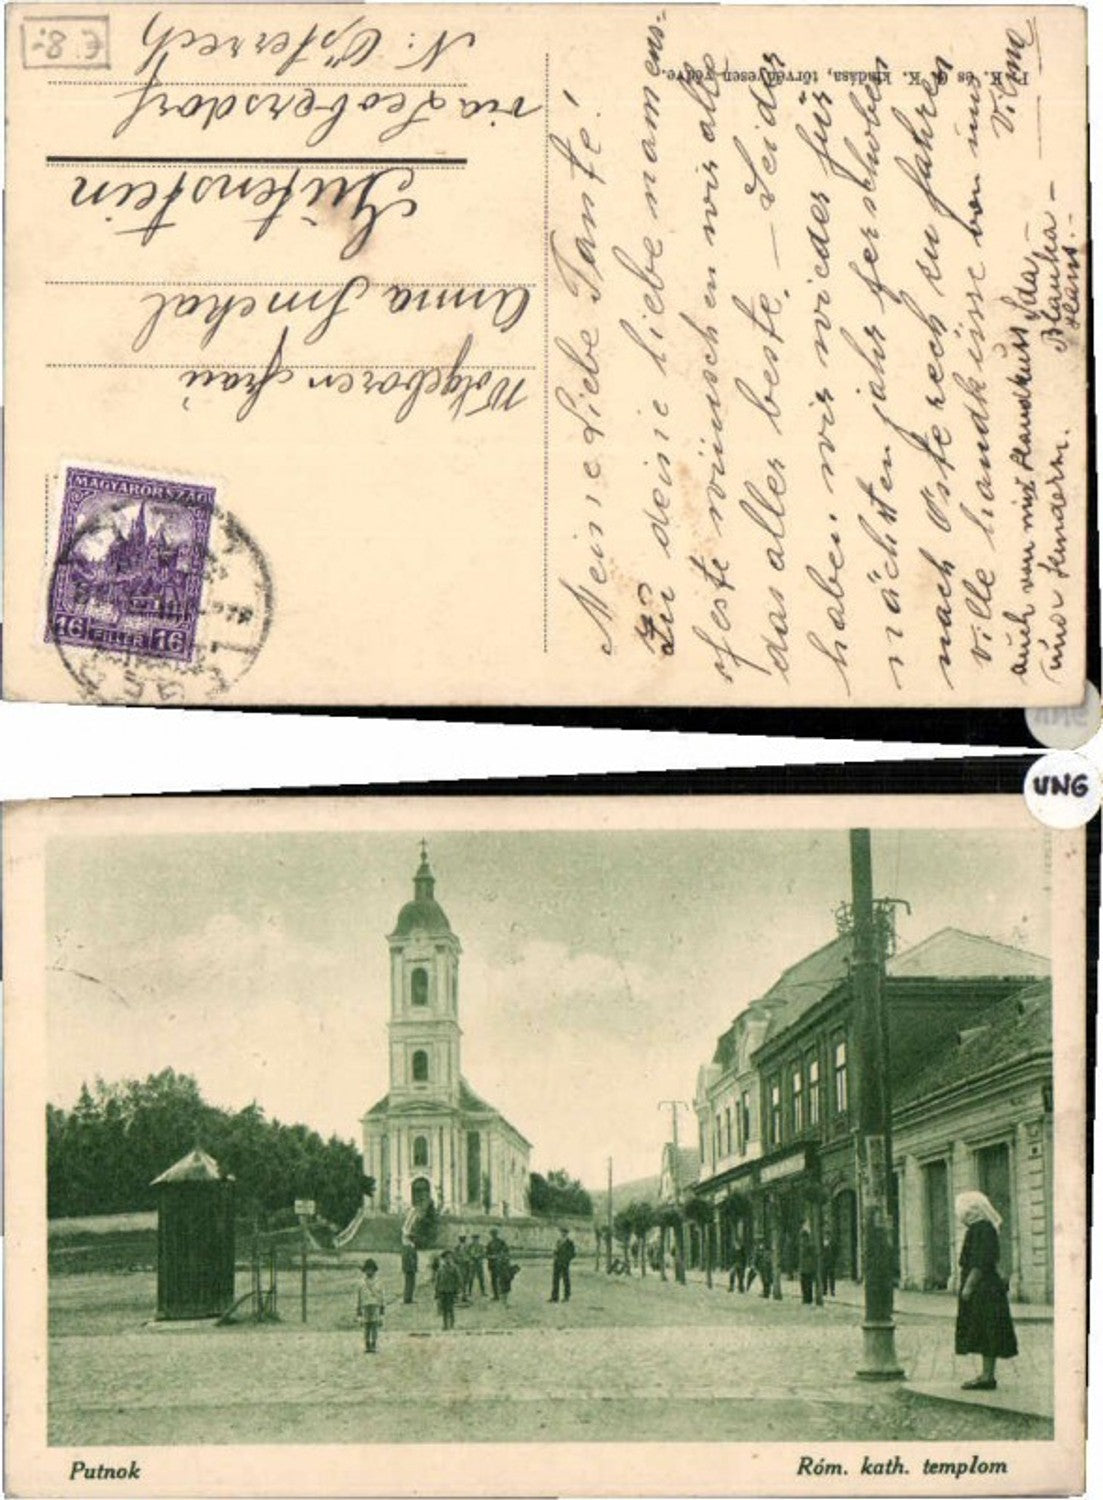 € 8.-
Meine Liebe Tante!
Zu deine liebe namens-
feste wünschen wir alle
das aller beste. — Leider
haben wir wieder für
nächsten jahr ferschoben
nach Österech zu fahren
ville handküsse von uns
auch von mir Handkuss Ida,
und Kindern.
Blanka —
Hans.-
Vilma
K. kiadása, törvényesen védve.
Wolgeboren Frau
Anna Smekal
Gutenstein
via Leobersdorf
N: Österrech
MAGYARORSZÁG
16 FILLÉR 16
UNG
Putnok
Róm. kath. templom